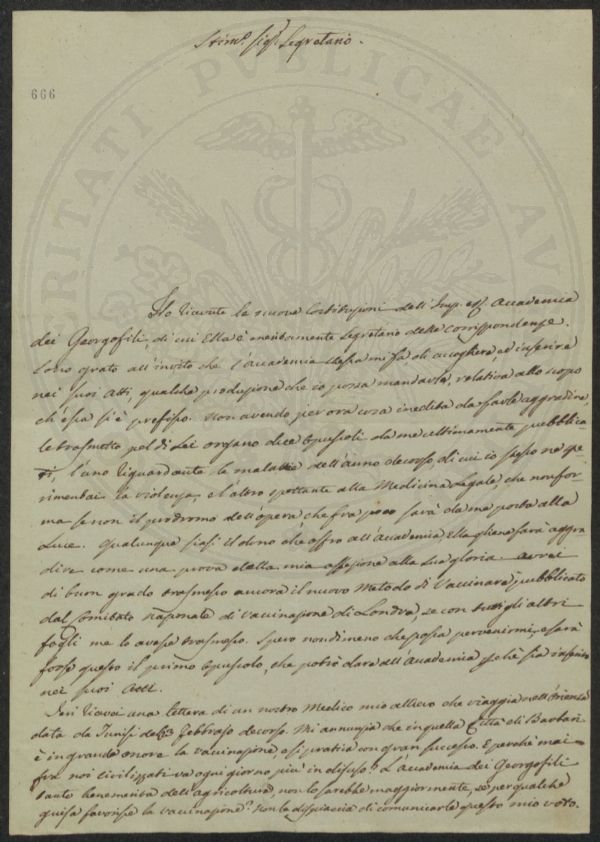 Stim.º Sig.r Segretario.
666
Ho ricevute le nuove Costituzioni dell'Imp. e R. Accademia
dei Georgofili, di cui Ella è meritamente Segretario delle corrispondenze.
Sono grato all'invito che l'Accademia stessa mi fa di accogliere ed inserire
nei suoi Atti, qualche produzione che io possa mandarle, relativa allo scopo
ch'essa si è prefisso. Non avendo per ora cosa inedita da farle aggradire,
le trasmetto pel di Lei organo due Opuscoli da me ultimamente pubblica-
ti, l'uno riguardante le malattie dell'anno decorso, di cui io stesso ne spe-
rimentai la violenza, e l'altro spettante alla Medicina Legale, che non for-
ma se non il prodromo dell'opera che fra poco sarà da me posta alla
Luce. Qualunque siasi il dono che offro all'Accademia, Ella gliene farà aggra-
dire come una prova della mia affezione alla sua gloria. Avrei
di buon grado trasmesso ancora il nuovo Metodo di Vaccinare pubblicato
dal Comitato di Vaccinazione di Londra, se con tutti gli altri
fogli me lo avesse trasmesso. Spero nondimeno che possa pervenirmi, e sarà
forse questo il primo Opuscolo, che potrò dare all'Accademia perchè sia inserito
nei suoi Atti.
Ieri ricevei una lettera di un nostro Medico mio allievo che viaggia nell'Oriente
data da Tunisi del Febbrajo decorso. Mi annunzia che in quella Città di Barbari
è in grande onore la vaccinazione, e si pratica con gran successo. E perchè mai
fra noi civilizzati va ogni giorno più in disuso? L'Accademia dei Georgofili
tanto benemerita dell'agricoltura, non lo sarebbe maggiormente, se per qualche
guisa favorisse la vaccinazione? Non le dispiaccia di comunicarle questo mio voto.